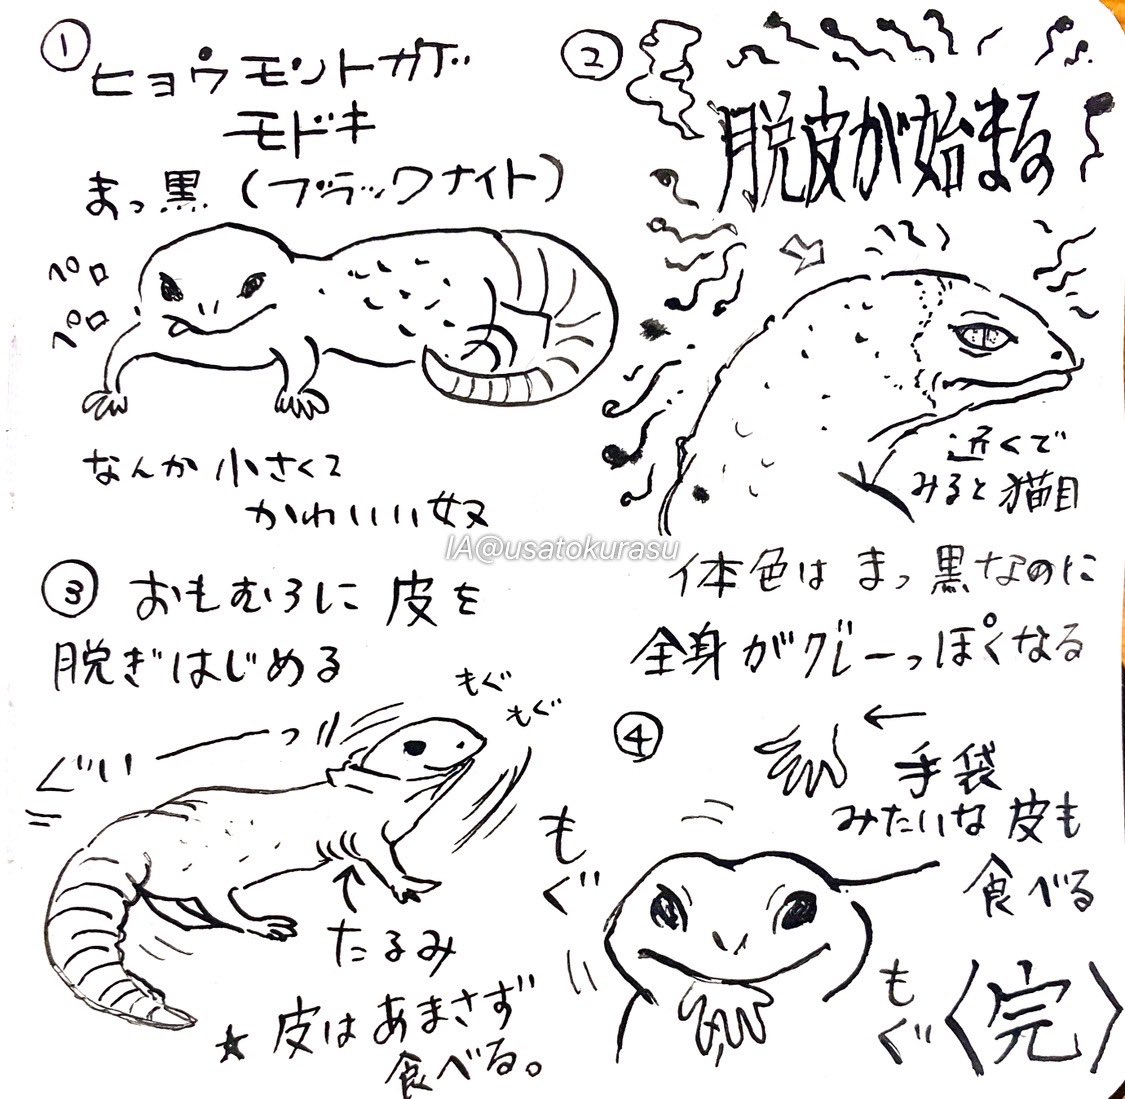 ①
ヒョウモントカゲ
モドキ
まっ黒(ブラックナイト)
ペロ
ペロ
なんか小さくて
かわいい奴
②
脱皮が始まる
近くで
みると猫目
体色はまっ黒なのに
全身がグレーっぽくなる
IA@usatokurasu
③ おもむろに皮を
脱ぎはじめる
もぐ
もぐ
ぐいーっ
たるみ
★皮はあまさず
食べる。
④
←手袋
みたいな皮も
食べる
もぐ
もぐ
〈完〉